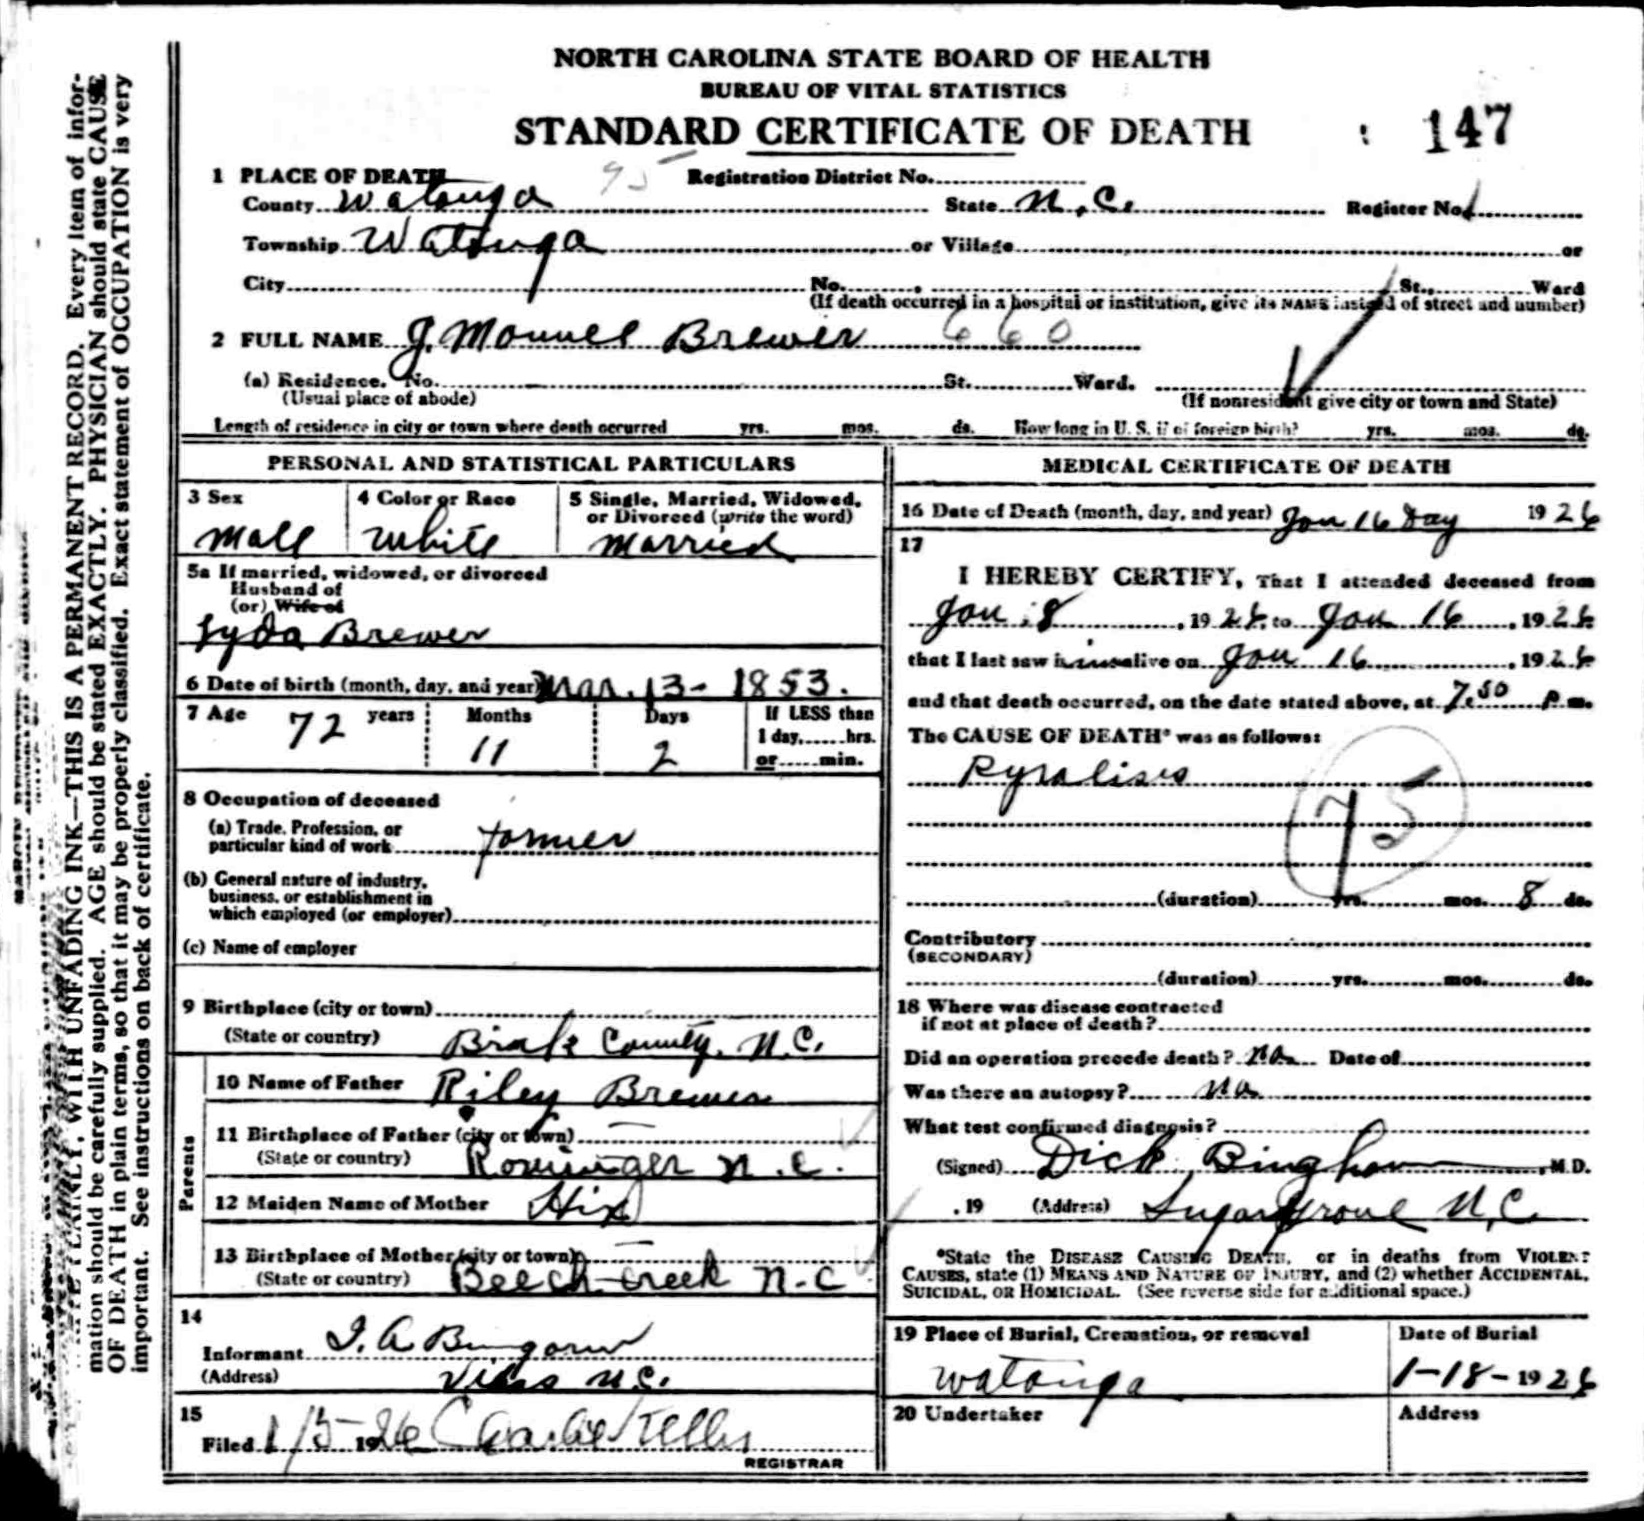 NORTH CAROLINA STATE BOARD OF HEALTH
BUREAU OF VITAL STATISTICS
STANDARD CERTIFICATE OF DEATH
147
1 PLACE OF DEATH 95 Registration District No.
County Watauga State N.C. Register No. 1
Township Watauga or Village or
City No. St., Ward
(If death occurred in a hospital or institution, give its NAME instead of street and number)
2 FULL NAME J. Brewer 660
(a) Residence. No. St. Ward.
(Usual place of abode) (If nonresident give city or town and State)
Length of residence in city or town where death occurred yrs. mos. ds. How long in U. S. if of foreign birth? yrs. mos. ds.
PERSONAL AND STATISTICAL PARTICULARS
3 Sex 4 Color or Race 5 Single, Married, Widowed,
or Divorced (write the word)
Male White Married
5a If married, widowed, or divorced
Husband of
(or) Wife of
Lyda Brewer
6 Date of birth (month, day, and year) Mar. 13- 1853.
7 Age 72 years Months 11 Days 2 If LESS than
1 day, hrs.
or min.
8 Occupation of deceased
(a) Trade, Profession, or
particular kind of work farmer
(b) General nature of industry,
business, or establishment in
which employed (or employer)
(c) Name of employer
9 Birthplace (city or town)
(State or country) County, N.C.
Parents
10 Name of Father Riley Brewer
11 Birthplace of Father (city or town)
(State or country) Rominger N.C.
12 Maiden Name of Mother Hix
13 Birthplace of Mother (city or town)
(State or country) Beech Creek N-C
14
Informant
(Address) Vilas N.C.
15
Filed 1/5- 1926
REGISTRAR
MEDICAL CERTIFICATE OF DEATH
16 Date of Death (month, day, and year) Jan 16 Day 1926
17
I HEREBY CERTIFY, That I attended deceased from
Jan. 8, 1926, to Jan 16, 1926
that I last saw him alive on Jan 16, 1926
and that death occurred, on the date stated above, at 7.50 P m.
The CAUSE OF DEATH* was as follows:
Pyralisis
75
(duration) yrs. mos. 8 ds.
Contributory
(SECONDARY)
(duration) yrs. mos. ds.
18 Where was disease contracted
if not at place of death?
Did an operation precede death? No Date of
Was there an autopsy? No
What test confirmed diagnosis?
(Signed) Dick Bingham, M.D.
, 19 (Address) Sugar Grove N.C.
*State the DISEASE CAUSING DEATH, or in deaths from VIOLENT
CAUSES, state (1) MEANS AND NATURE OF INJURY, and (2) whether ACCIDENTAL,
SUICIDAL, OR HOMICIDAL. (See reverse side for additional space.)
19 Place of Burial, Cremation, or removal Date of Burial
Watauga 1-18-1926
20 Undertaker Address
WRITE PLAINLY, WITH UNFADING INK—THIS IS A PERMANENT RECORD. Every item of infor-
mation should be carefully supplied. AGE should be stated EXACTLY. PHYSICIAN should state CAUSE
OF DEATH in plain terms, so that it may be properly classified. Exact statement of OCCUPATION is very
important. See instructions on back of certificate.